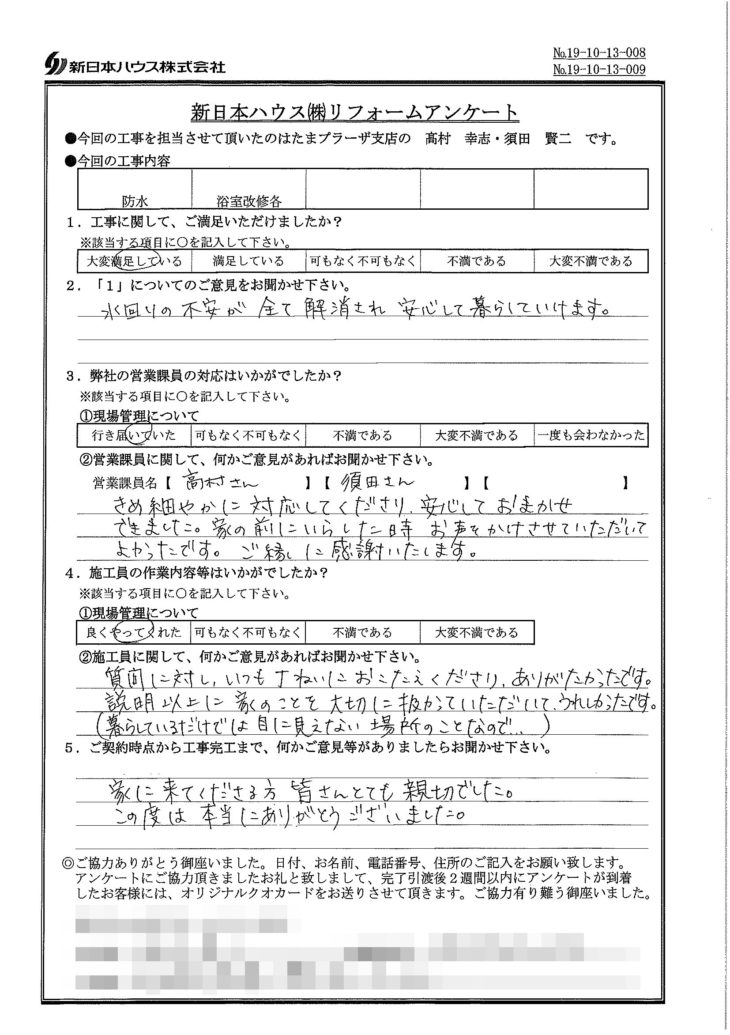 新日本ハウス株式会社
№19-10-13-008
№19-10-13-009
新日本ハウス㈱リフォームアンケート
●今回の工事を担当させて頂いたのはたまプラーザ支店の 髙村 幸志・須田 賢二 です。
●今回の工事内容
防水 浴室改修各
1．工事に関して、ご満足いただけましたか？
※該当する項目に○を記入して下さい。
大変満足している 満足している 可もなく不可もなく 不満である 大変不満である
2．「1」についてのご意見をお聞かせ下さい。
水回りの不安が全て解消され安心して暮らしていけます。
3．弊社の営業課員の対応はいかがでしたか？
※該当する項目に○を記入して下さい。
①現場管理について
行き届いていた 可もなく不可もなく 不満である 大変不満である 一度も会わなかった
②営業課員に関して、何かご意見があればお聞かせ下さい。
営業課員名【 高村さん 】【 須田さん 】【 】
きめ細やかに対応してくださり、安心しておまかせ
できました。家の前にいらした時お声をかけさせていただいて
よかったです。ご縁に感謝いたします。
4．施工員の作業内容等はいかがでしたか？
※該当する項目に○を記入して下さい。
①現場管理について
良くやってくれた 可もなく不可もなく 不満である 大変不満である
②施工員に関して、何かご意見があればお聞かせ下さい。
質問に対し、いつもていねいにおこたえくださり、ありがたかったです。
説明以上に家のことを大切に扱かっていただいて、うれしかったです。
(暮らしているだけでは目に見えない場所のことなので…)
5．ご契約時点から工事完工まで、何かご意見等がありましたらお聞かせ下さい。
家に来てくださる方皆さんとても親切でした。
この度は本当にありがとうございました。
◎ご協力ありがとう御座いました。日付、お名前、電話番号、住所のご記入をお願い致します。
アンケートにご協力頂きましたお礼と致しまして、完了引渡後２週間以内にアンケートが到着
したお客様には、オリジナルクオカードをお送りさせて頂きます。ご協力有り難う御座いました。